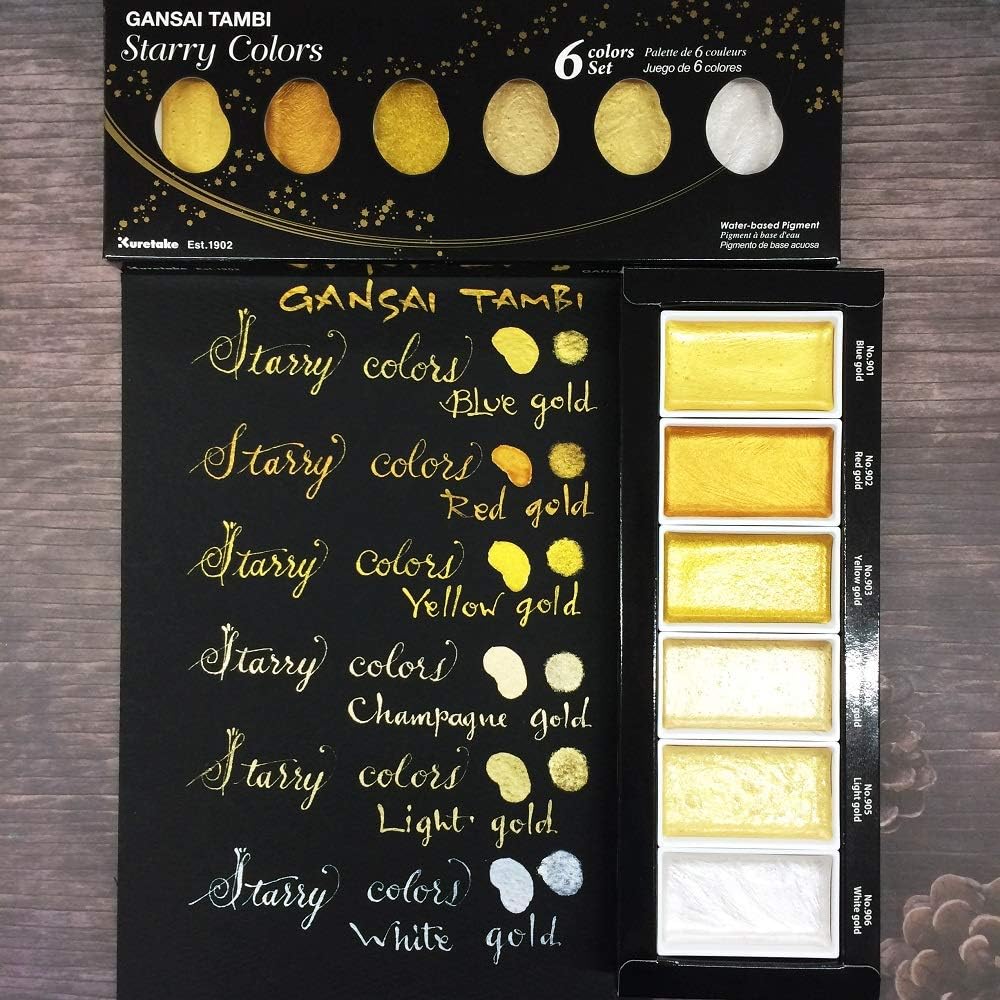 GANSAI TAMBI
Starry Colors
6 colors Set
Palette de 6 couleurs
Juego de 6 colores
Kuretake Est.1902
Water-based Pigment
Pigment à base d'eau
Pigmento de base acuosa
Kuretake Est.1902
GANSAI TAMBI
Starry colors
Blue gold
Starry colors
Red gold
Starry colors
Yellow gold
Starry colors
Champagne gold
Starry colors
Light gold
Starry colors
White gold
No.901
Blue gold
No.902
Red gold
No.903
Yellow gold
gold
No.905
Light gold
No.906
White gold